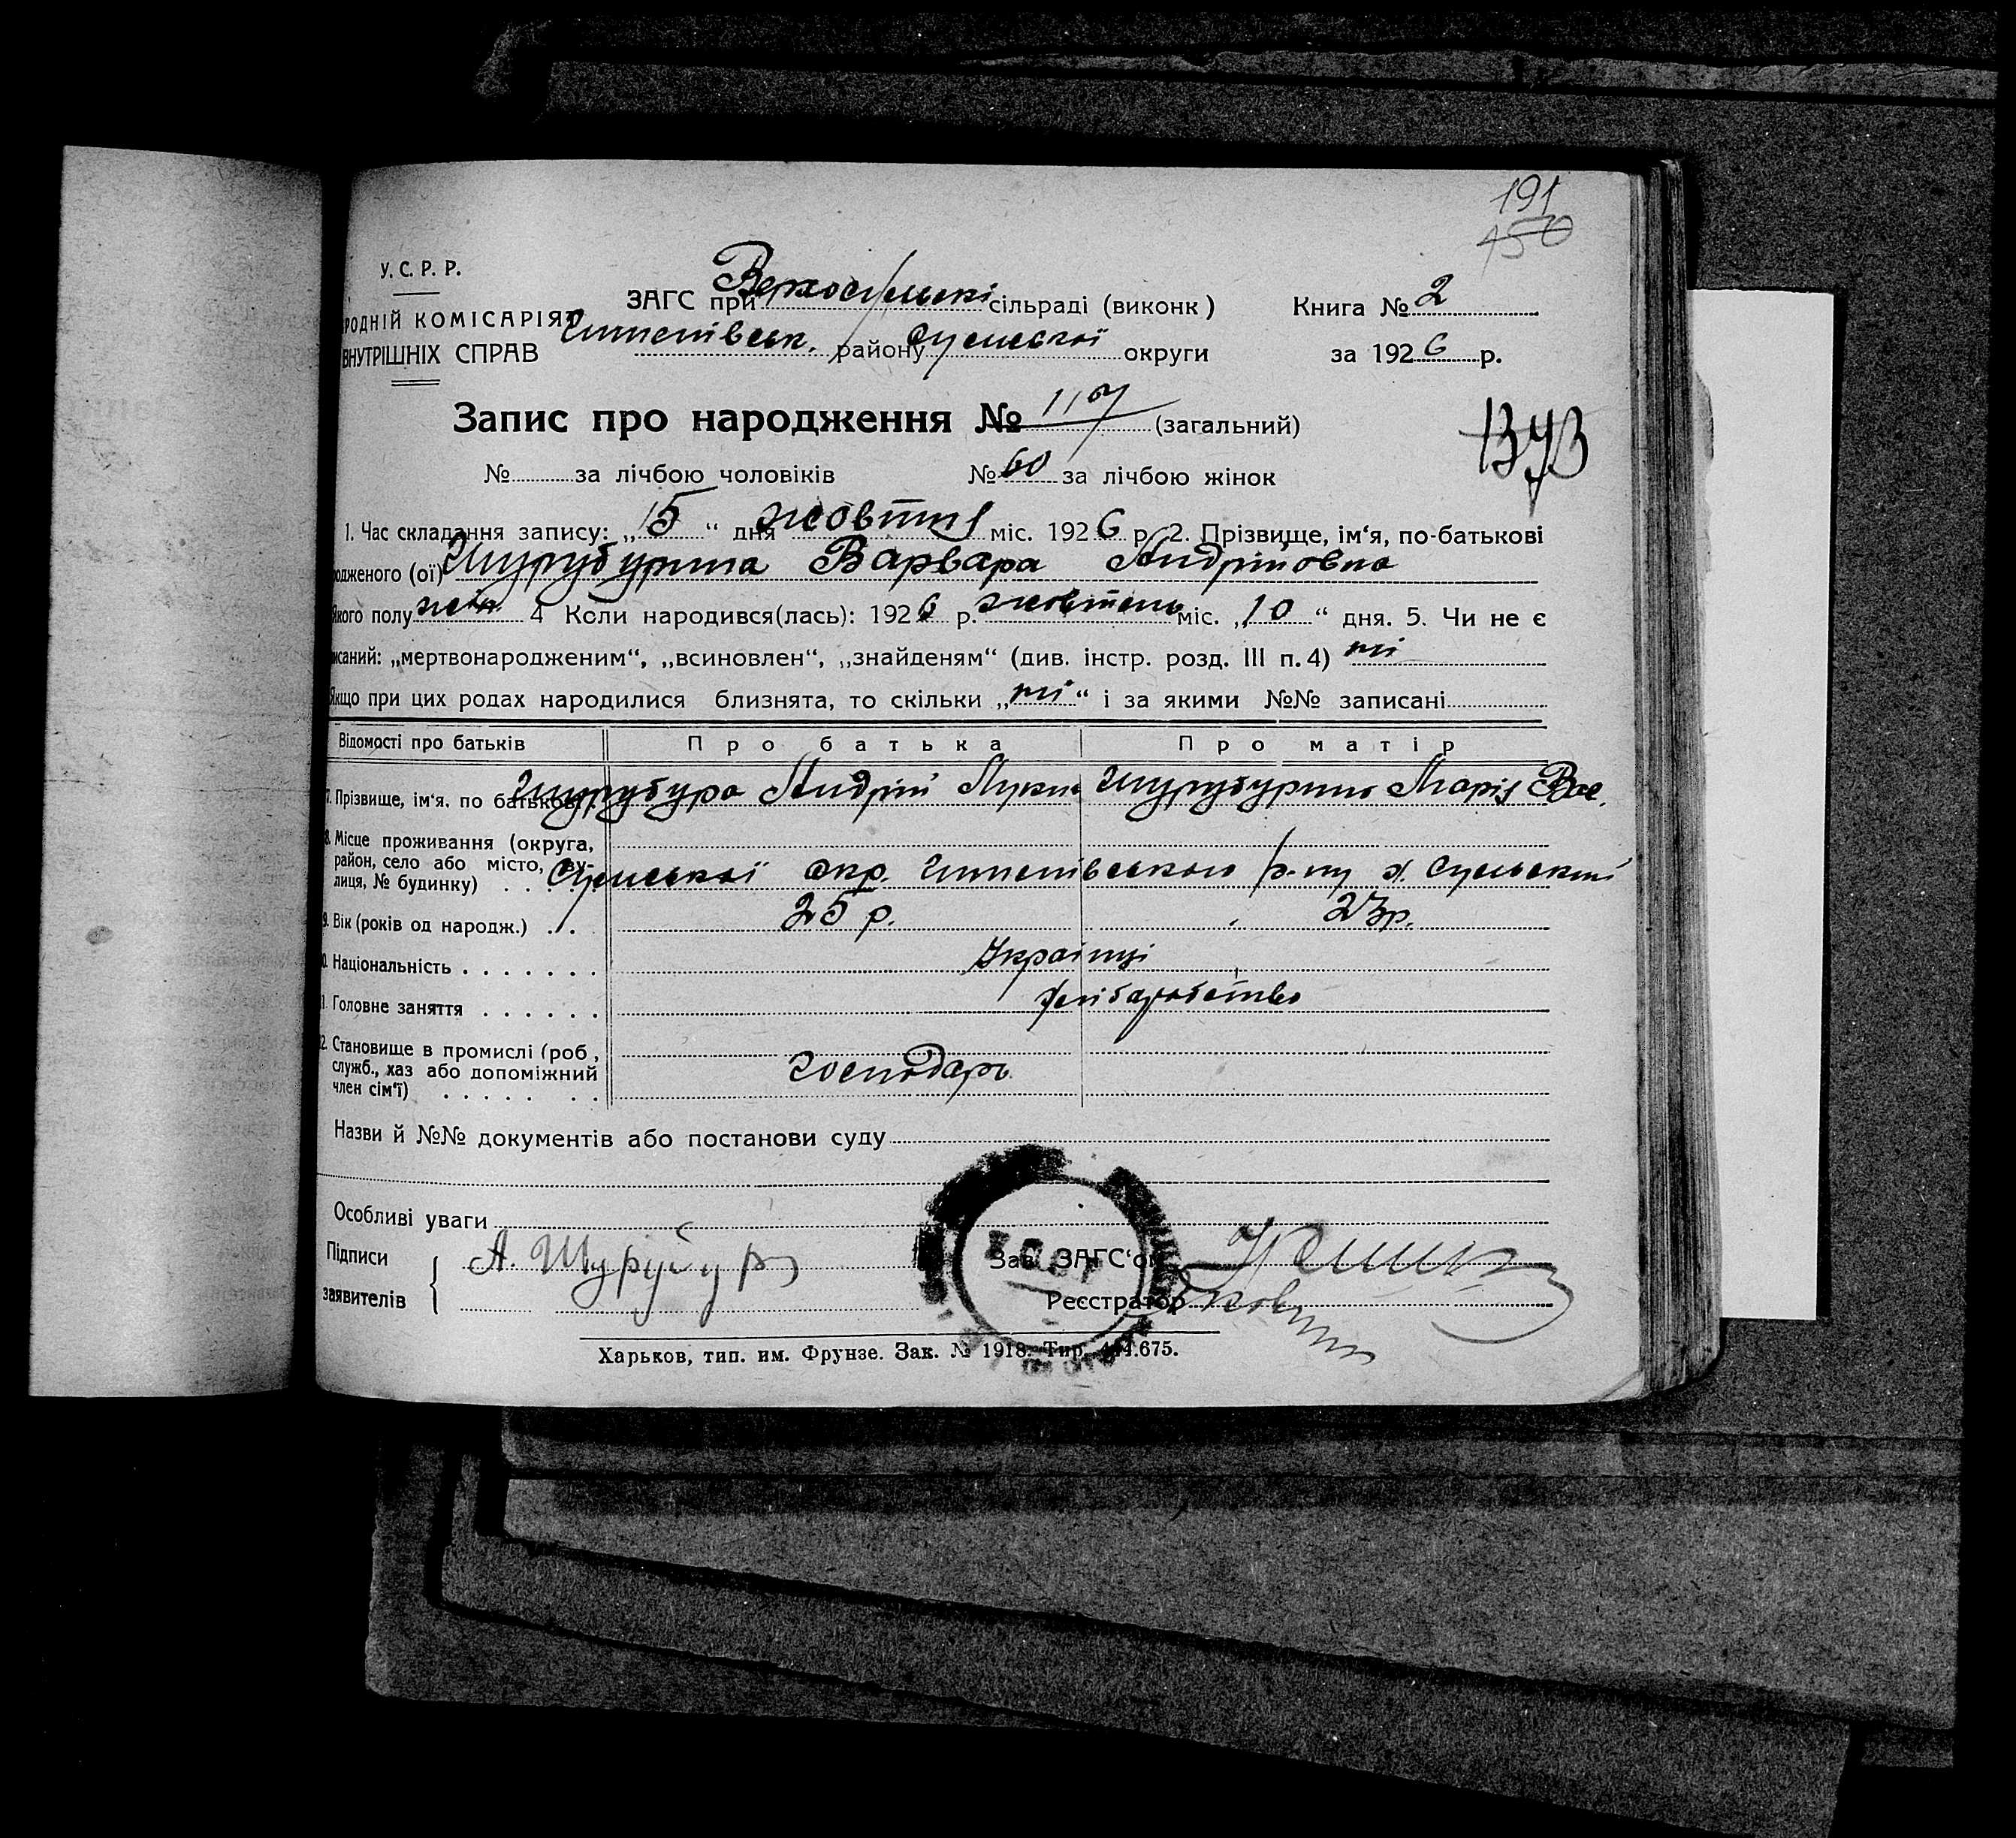 191
450
У. С. Р. Р.
РОДНІЙ КОМІСАРІЯТ
ВНУТРІШНІХ СПРАВ
ЗАГС при Верхосульскі сільраді (виконк )
Штепівськ. району Сумської округи
Книга № 2
за 1926 р.
Запис про народження № 117 (загальний)
1373
№ за лічбою чоловіків № 60 за лічбою жінок
1. Час складання запису: „15“ дня жовтня міс. 1926 р. 2. Прізвище, ім‘я, по-батькові
одженого (ої) Шурубурина Варвара Андріївна
якого полу жін. 4 Коли народився(лась): 1926 р. жовтень міс. „10“ дня. 5. Чи не є
исаний: „мертвонародженим“, „всиновлен“, „знайденям“ (див. інстр. розд. III п. 4) ні
Якщо при цих родах народилися близнята, то скільки „ні“ і за якими №№ записані
Відомості про батьків Про батька Про матір
7. Прізвище, ім‘я, по батькові Шурубура Андрій Лукич Шурубурина Марія Вас.
8. Місце проживання (округа,
район, село або місто, ву-
лиця, № будинку) . . Сумської окр. Штепівського р-ну х. Сульский
9. Вік (років од народж.) . . 25 р. 23 р.
0. Національність . . . . . . . Українці
1. Головне заняття . . . . . . Хліборобство
2. Становище в промислі (роб,
служб., хаз або допоміжний
член сім‘ї) . . . . . . . Господарь
Назви й №№ документів або постанови суду
Особливі уваги
Підписи
заявителів
А. Шурубура
Зав. ЗАГС‘ом
Реєстратор
Харьков, тип. им. Фрунзе. Зак. № 1918. Тир. 444.675.